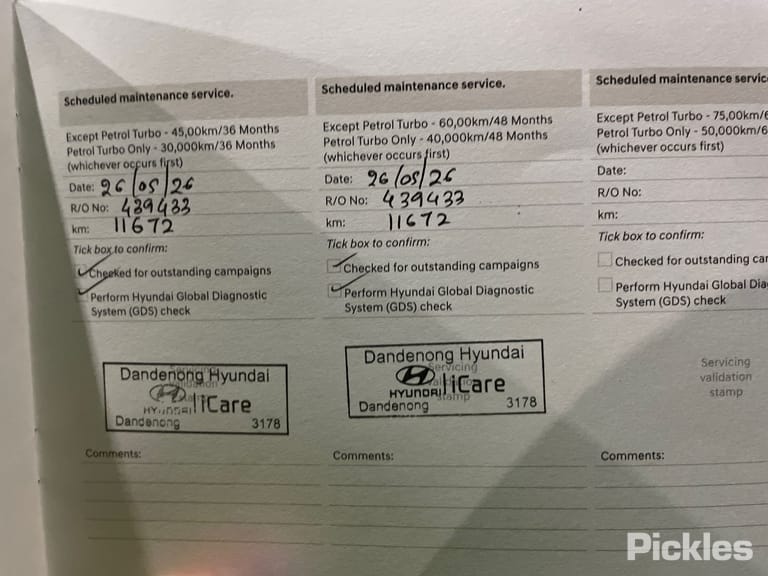 Scheduled maintenance service.
Except Petrol Turbo - 45,00km/36 Months
Petrol Turbo Only - 30,000km/36 Months
(whichever occurs first)
Date: 26/05/26
R/O No: 439433
km: 11672
Tick box to confirm:
Checked for outstanding campaigns
Perform Hyundai Global Diagnostic
System (GDS) check
Dandenong Hyundai
HYUNDAI iCare
Dandenong 3178
Comments:
Scheduled maintenance service.
Except Petrol Turbo - 60,00km/48 Months
Petrol Turbo Only - 40,000km/48 Months
(whichever occurs first)
Date: 26/05/26
R/O No: 439433
km: 11672
Tick box to confirm:
Checked for outstanding campaigns
Perform Hyundai Global Diagnostic
System (GDS) check
Dandenong Hyundai
Servicing
HYUNDAI iCare
stamp
Dandenong 3178
Comments:
Scheduled maintenance servic
Except Petrol Turbo - 75,00km/6
Petrol Turbo Only - 50,000km/6
(whichever occurs first)
Date:
R/O No:
km:
Tick box to confirm:
Checked for outstanding ca
Perform Hyundai Global Dia
System (GDS) check
Servicing
validation
stamp
Comments:
Pickles